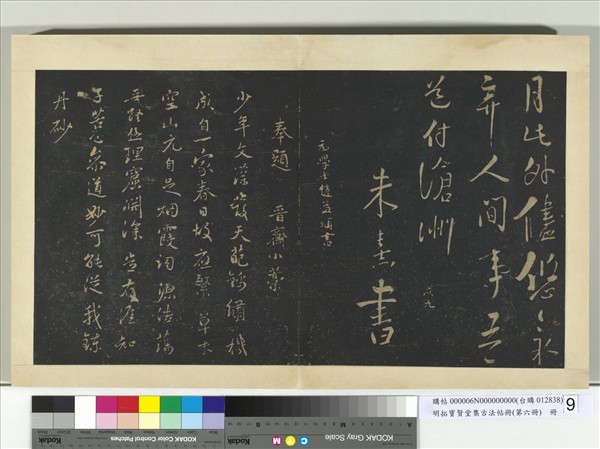 月此外儘悠悠永
棄人間事吾
道付滄洲
朱熹書
元學士趙孟頫書
奉題 晉齋小藁
少年文藻發天葩錦繡機
成自一家春日坡應繁草木
空山元自足烟霞詞源浩蕩
無能極理窟淵深豈有涯知
子苦心參道妙可能從我鍊
丹砂
購帖 000006N000000000(台購 012838)
明拓寶賢堂集古法帖冊(第六冊) 冊
9
KODAK Color Control Patches
Kodak
KODAK Gray Scale
C Y M
Kodak